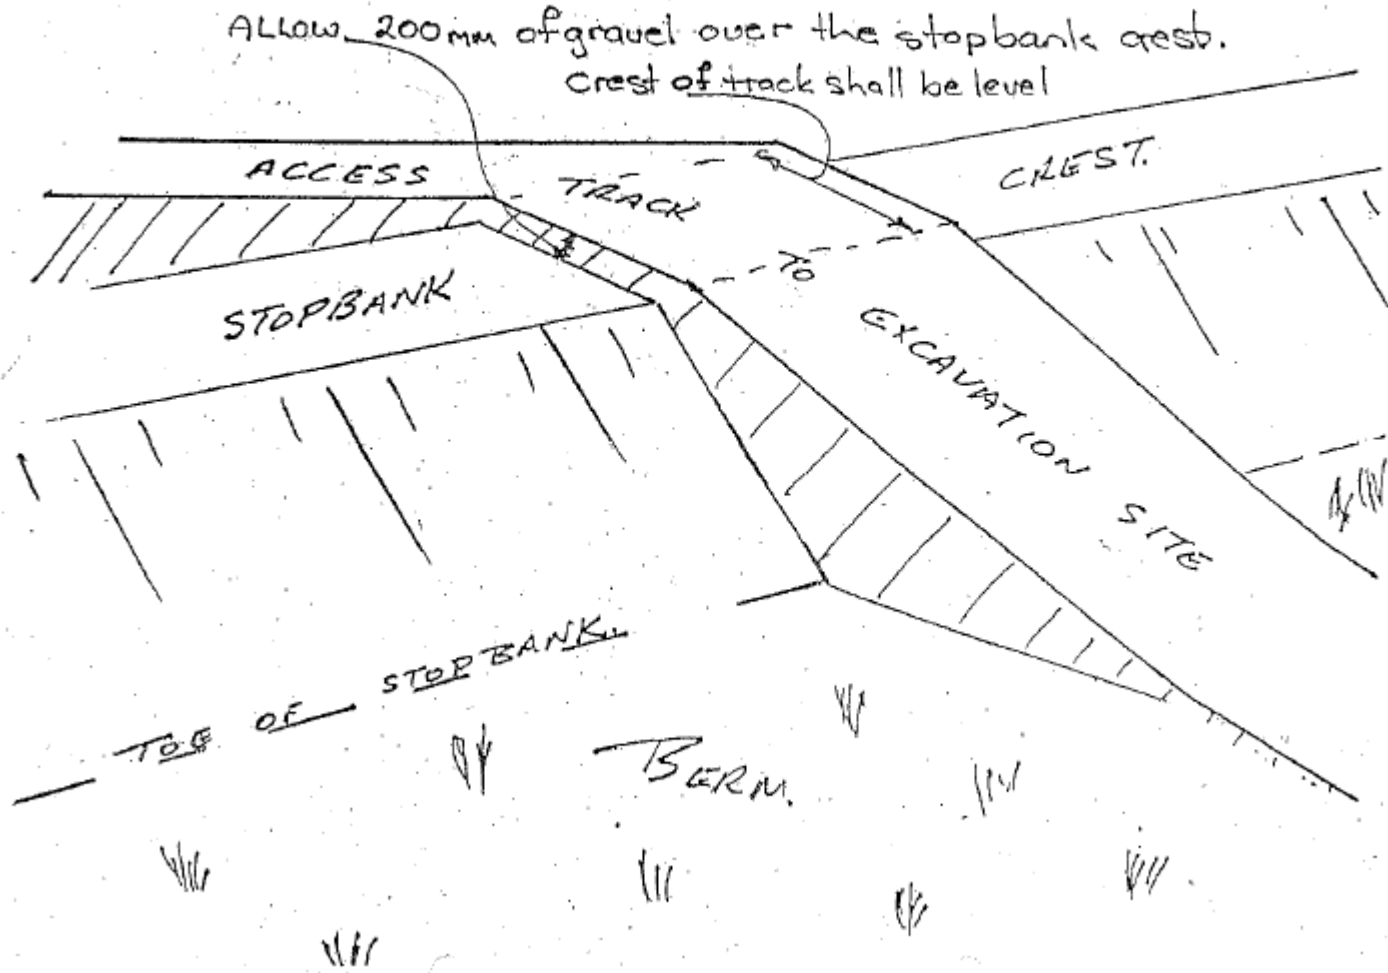 ALLOW 200mm of gravel over the stopbank crest.
Crest of track shall be level
ACCESS TRACK TO EXCAVATION SITE
CREST.
STOPBANK
TOE OF STOPBANK.
BERM.